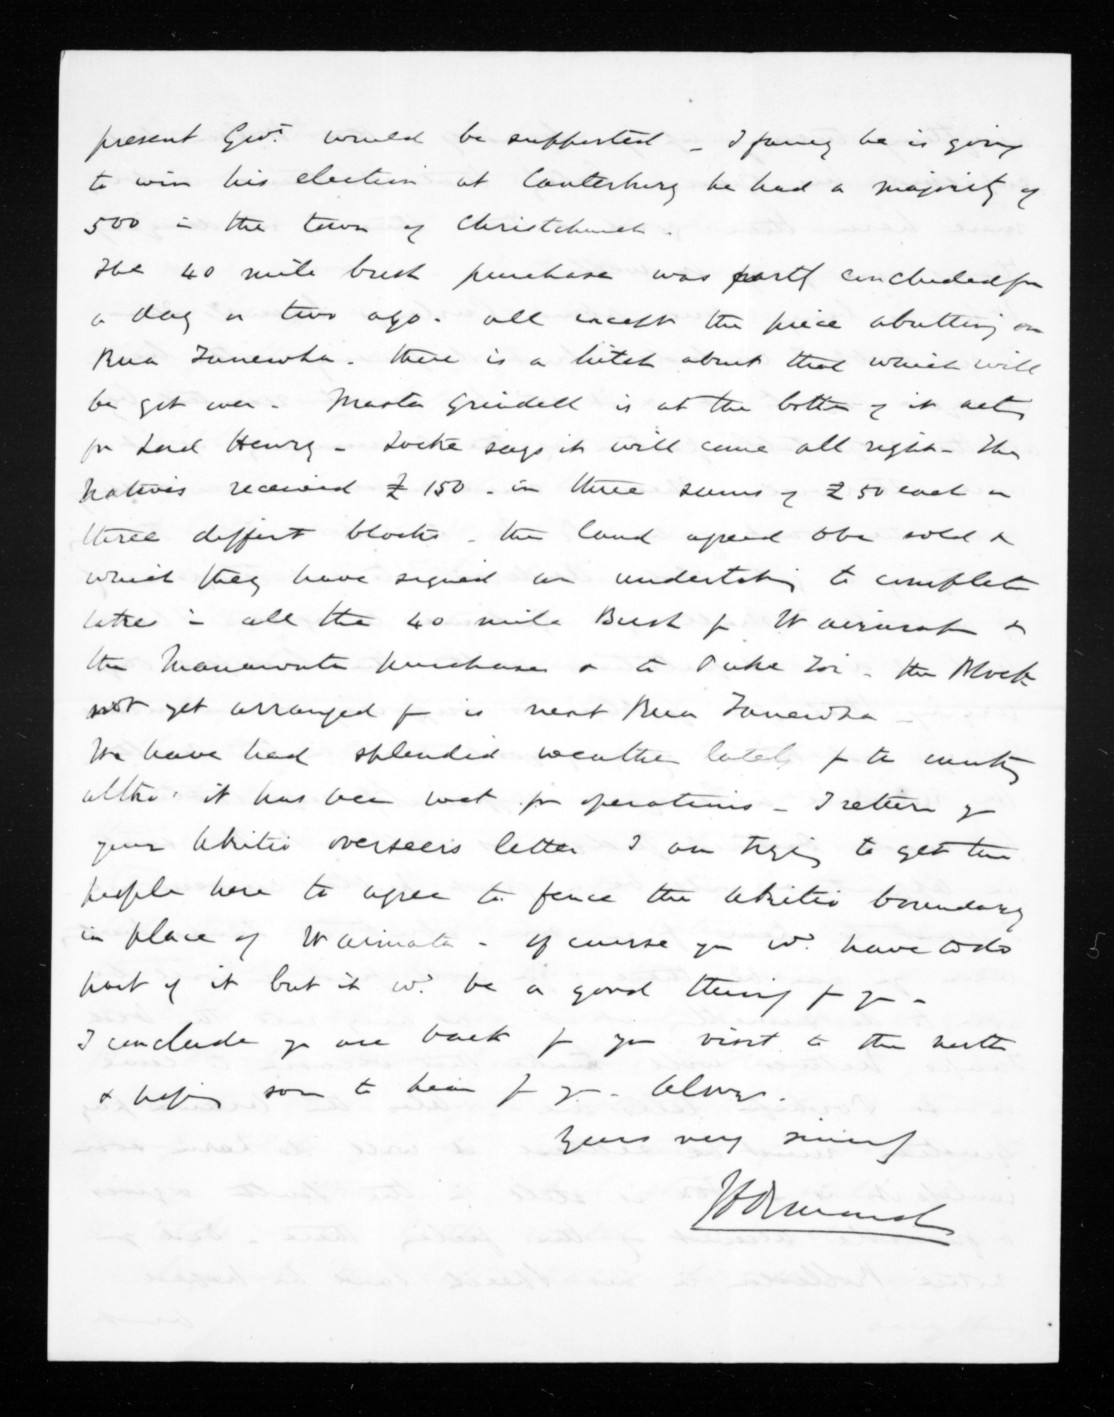 present Govt. would be supported - I fancy he is going
to win his election at Canterbury he had a majority of
500 in the town of Christchurch.
The 40 mile bush purchase was partly concluded for
a day or two ago. all except the piece abutting on
Rua Taniwha. there is a hitch about that which will
be got over - Master Grindell is at the bottom of it acting
for Lord Henry - Locke says it will come all right - The
Natives received £150 - in three sums of £50 each on
three different blocks - the land agreed to be sold &
which they have signed an undertaking to complete
takes in all the 40 mile Bush fr Wairarapa &
the Manawatu purchase & to Puke Toi - the Block
not yet arranged for is next Rua Taniwha -
We have had splendid weather lately for the country
altho' it has been wet for operations - I return you
your Akitio overseers letter I am trying to get the
people here to agree to fence the Akitio boundary
in place of Waimata - of course you wd. have to do
part of it but it wd. be a good thing for you -
I conclude you are back fr your visit to the north
& hoping soon to hear fr you - Always.
Yours very sincerely
JD Ormond